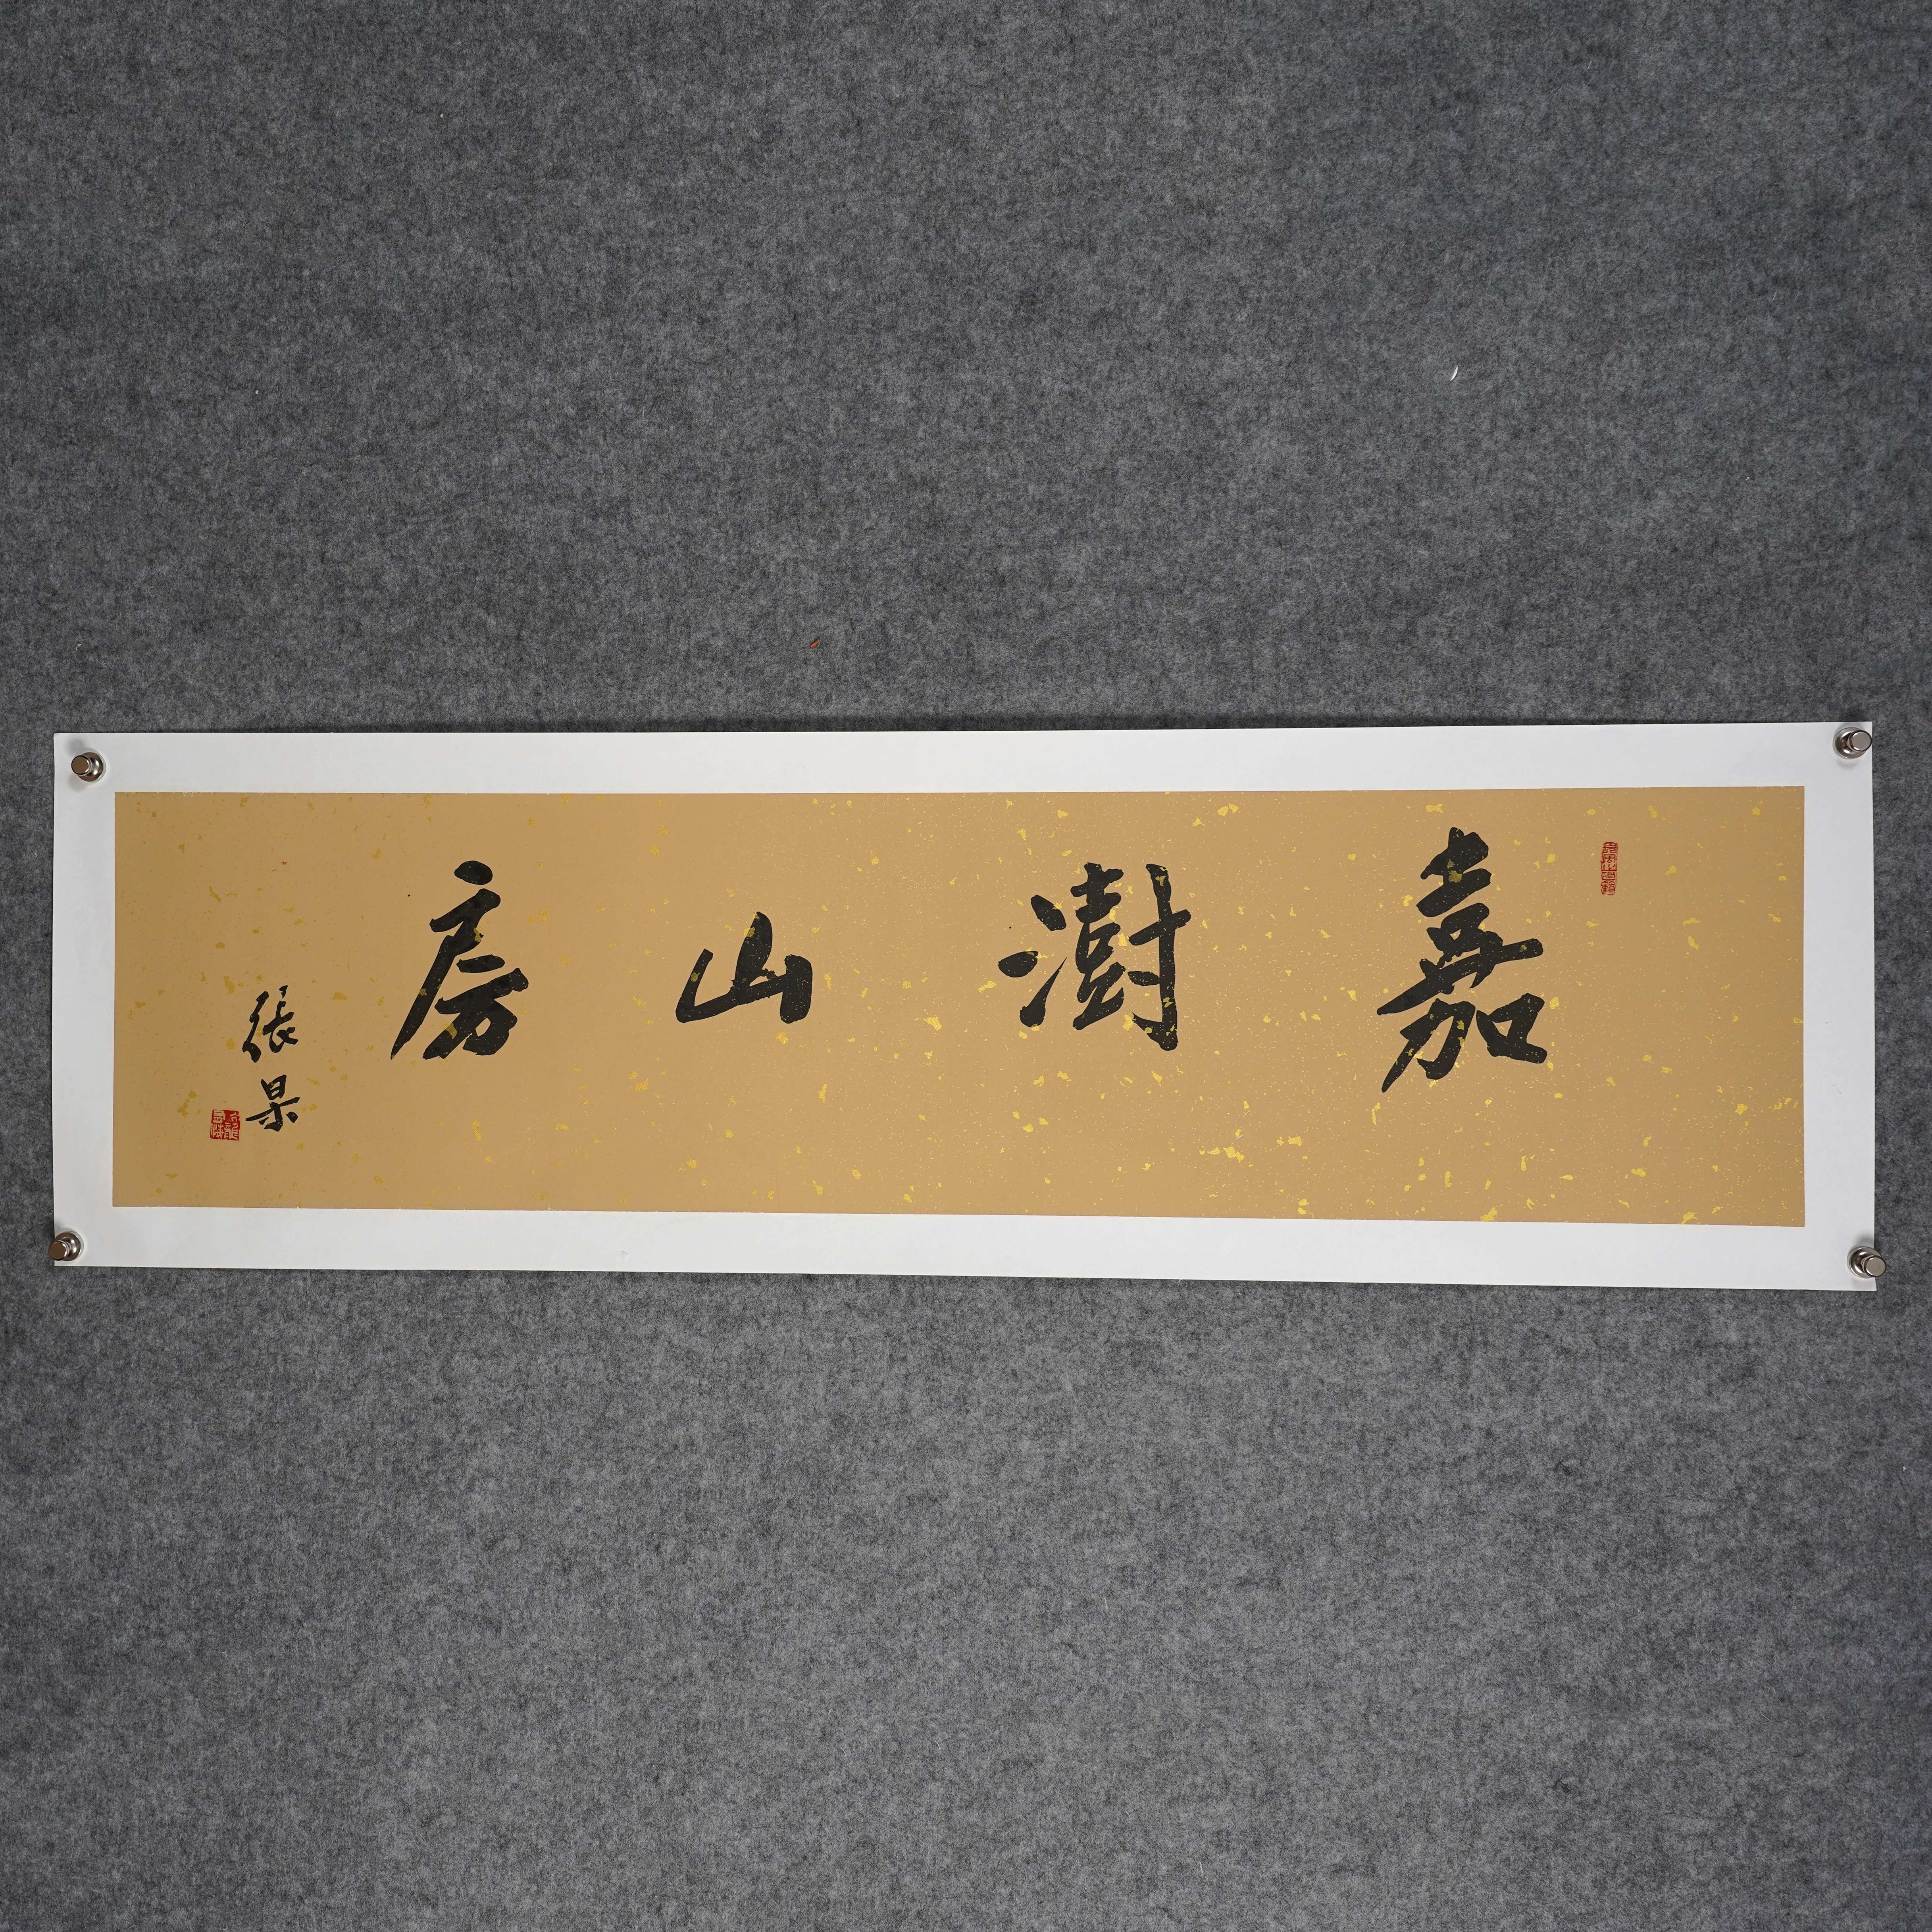 嘉澍山房
張杲